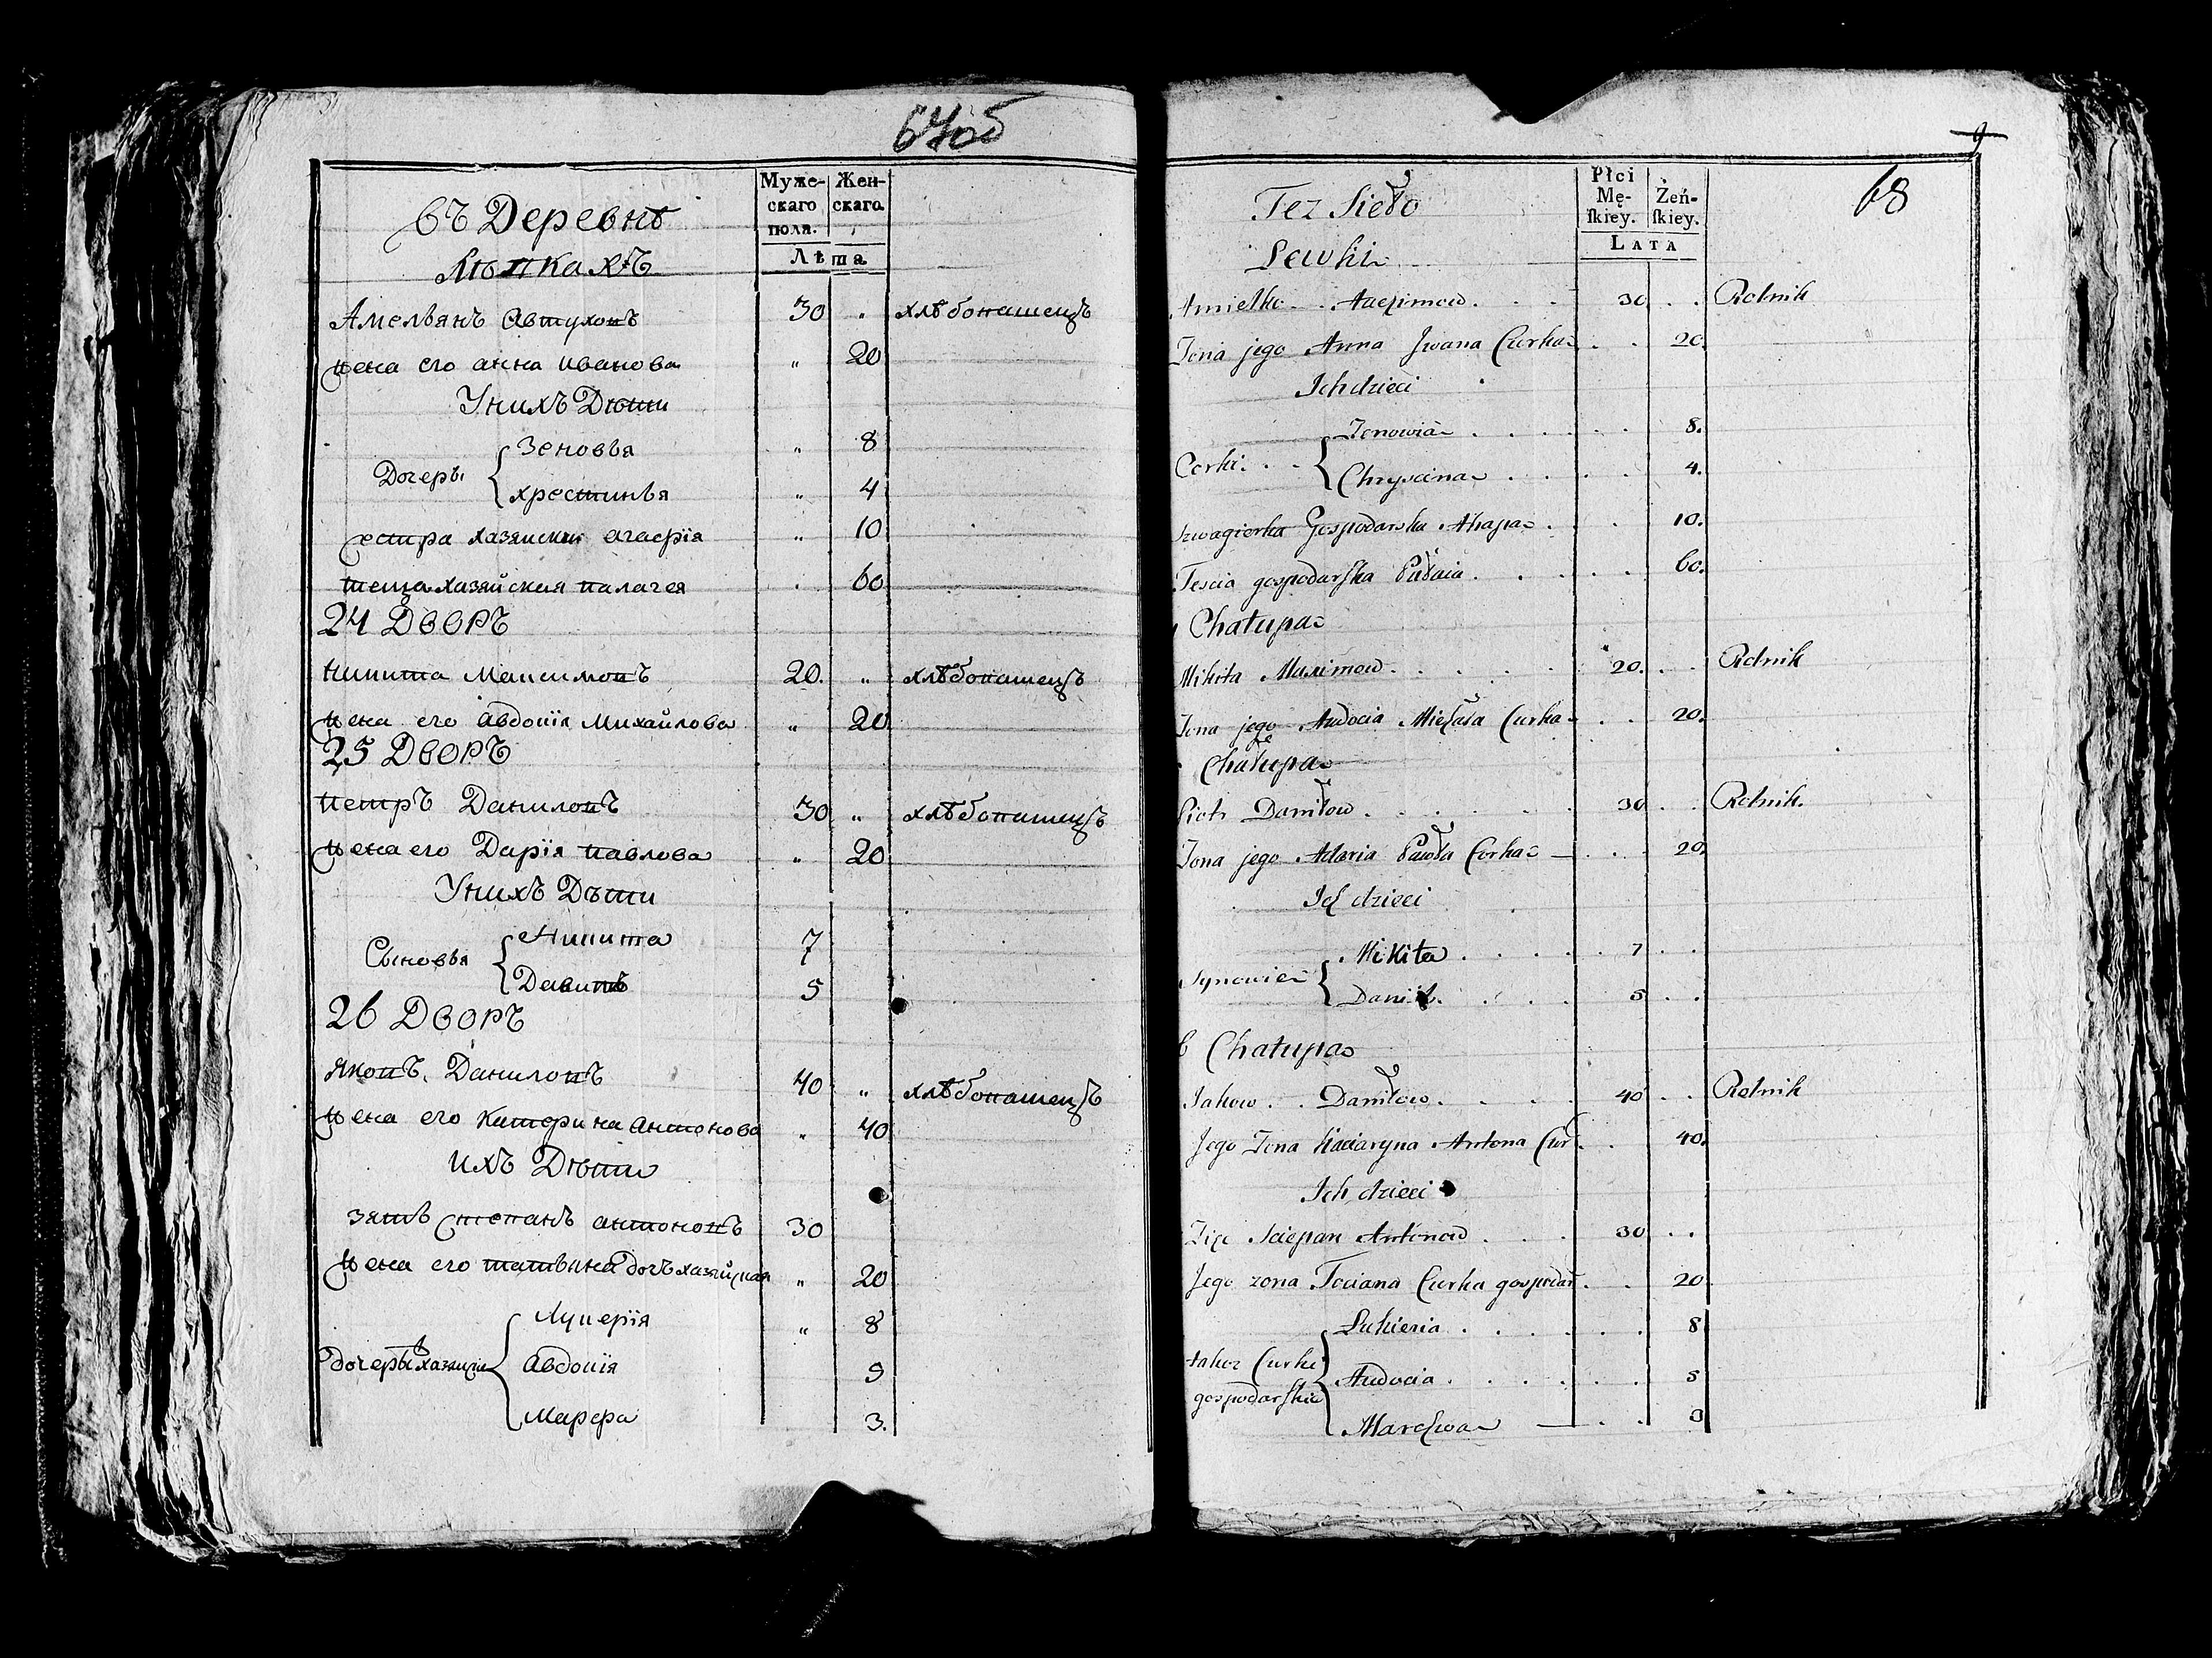 67об
въ Деревнѣ
Мужескаго пола.
Женскаго.
Лѣта
Амельянъ Автуховъ 30 „ хлѣбопашецъ
жена его анна Иванова „ 20
Унихъ Дѣти
Дочеры
Зеновья „ 8
Хрестинья „ 4
сестра хазяиска агаφія „ 10
теща хазяйская палагея 60
24 Дворъ
Никита Максимовъ 20. „ хлѣбопашецъ
жена его Авдокія Михайлова „ 20
25 Дворъ
Петръ Даниловъ 30 „ хлѣбопашецъ
жена его Дарія павлова „ 20
Унихъ Дѣти
Сыновья
Никита 7
Давитъ 5
26 Дворъ
Яковъ Даниловъ 40 „ хлѣбопашецъ
жена его Катерина антонова „ 40
ихъ Дѣти
зять степанъ антоновъ 30
жена его татьяна дочь хазяйская „ 20
дочеры хазяиски
Лукерія „ 8
Авдокія 5
Марфа 3.
9
68
Płci Męſkiey.
Żeńſkiey.
LATA
Tez Sieło
Lewki
Amielko 30 . . Rolnik
Zona jego Anna Jwana Curka . . 20.
Ich dzieci
Corki
Zenowia 8.
Chryscina 4.
szwagierka Gospodarska Ahapa 10.
Tescia gospodarska 60.
Chałupa
Mikita Maximow 20. . . Rolnik
Zona jego Audocia Michała Curka . . 20.
Chałupa
Piotr Daniłow 30 . . Rolnik.
Zona jego Adaria Pawła Corka . . 20.
Ich dzieci
Synowie
Mikita 7 . .
Danił 5 . .
6 Chałupa
Jakow Daniłow 40 . . Rolnik
Jego Zona Kaciaryna Antona Cur. . . 40.
Ich dzieci
Zięc Sciepan Antonow 30 . .
Jego zona Taciana Curka gospodar. . . 20
takoz Curki gospodarskie
Łukieria 8
Audocia 5
Marchwa 3